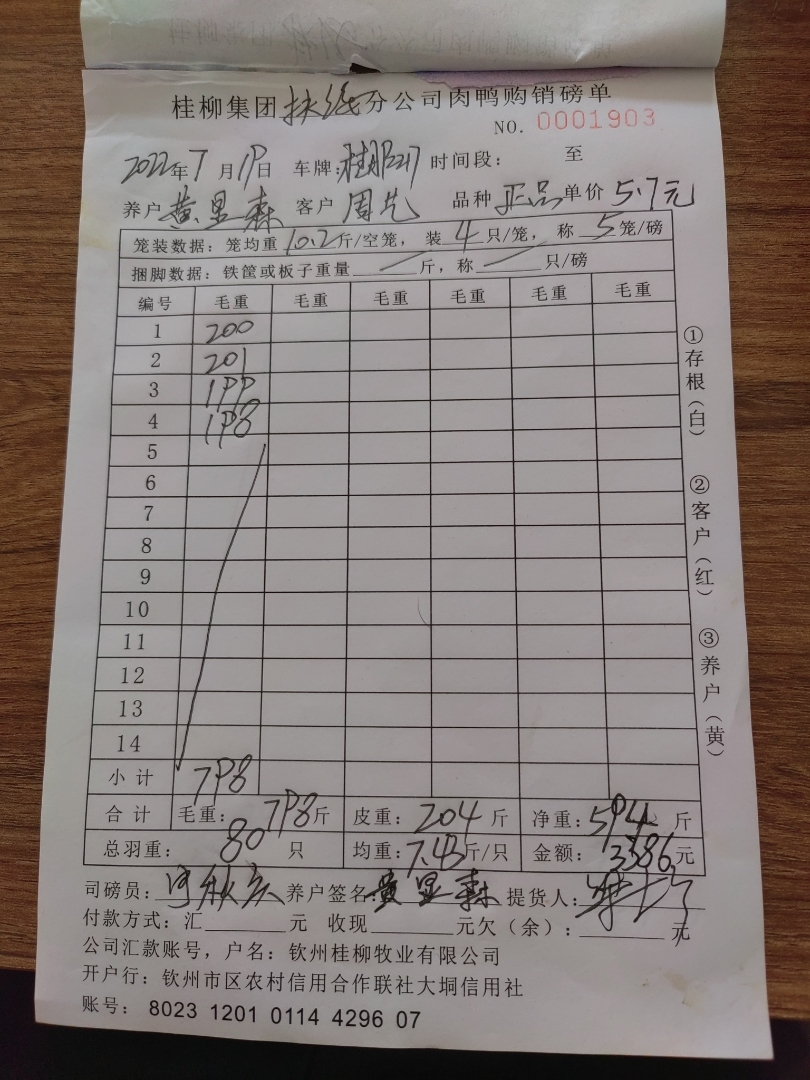 桂柳集团扶绥分公司肉鸭购销磅单
NO. 0001903
2022年7月19日 车牌: 时间段: 至
养户 黄显森 客户 周光 品种 正品 单价 5.7元
笼装数据: 笼均重10.2斤/空笼, 装4只/笼, 称5笼/磅
捆脚数据: 铁筐或板子重量 斤, 称 只/磅
编号 毛重 毛重 毛重 毛重 毛重 毛重
1 200
2 201
3 199
4 198
5
6
7
8
9
10
11
12
13
14
小计 798
合计 毛重: 798斤 皮重: 204斤 净重: 594斤
总羽重: 80只 均重: 7.43斤/只 金额: 3386元
司磅员: 养户签名: 黄显森 提货人:
付款方式: 汇 元 收现 元欠(余): 元
公司汇款账号, 户名: 钦州桂柳牧业有限公司
开户行: 钦州市区农村信用合作联社大垌信用社
账号: 8023 1201 0114 4296 07
①存根(白) ②客户(红) ③养户(黄)